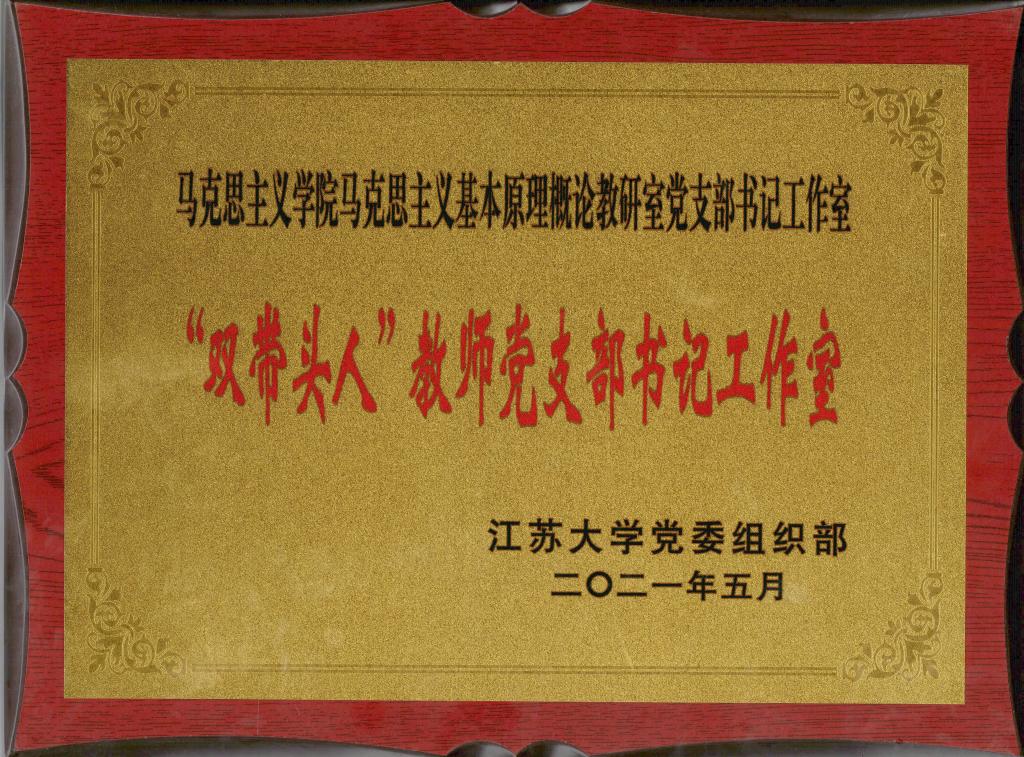 马克思主义学院马克思主义基本原理概论教研室党支部书记工作室
“双带头人”教师党支部书记工作室
江苏大学党委组织部
二〇二一年五月